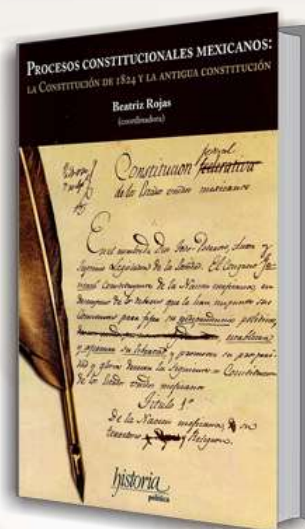 PROCESOS CONSTITUCIONALES MEXICANOS:
LA CONSTITUCIÓN DE 1824 Y LA ANTIGUA CONSTITUCIÓN
Beatriz Rojas
(coordinadora)
Constitucion federativa
de los Estados unidos mexicanos
En el nombre de Dios Todo-Poderoso, Autor y
Supremo Legislador de la Sociedad. El Congreso
Constituyente de la Nacion mexicana, en
desempeño de los deberes que le han impuesto sus
comitentes para fijar su independencia política,
establecer
y afirmar su libertad, y promover su prosperi-
dad y gloria decreta la siguiente Constitucion
de los Estados unidos mexicanos
Título 1º
De la Nacion mexicana, su
territorio y Religion.
historia
política